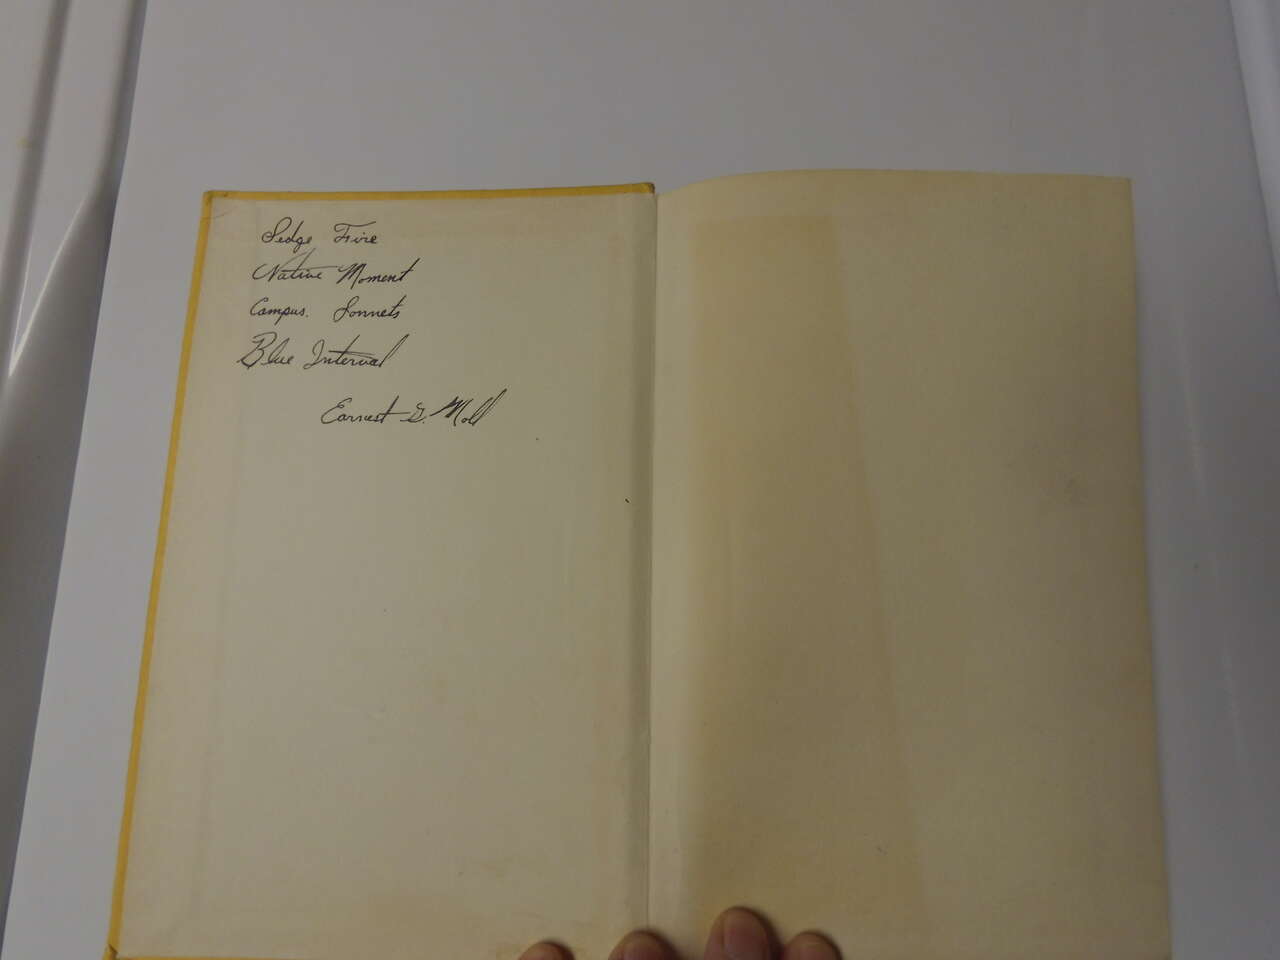 Sedge Fire
Native Moment
Campus. Sonnets
Blue Interval
Earnest G. Moll